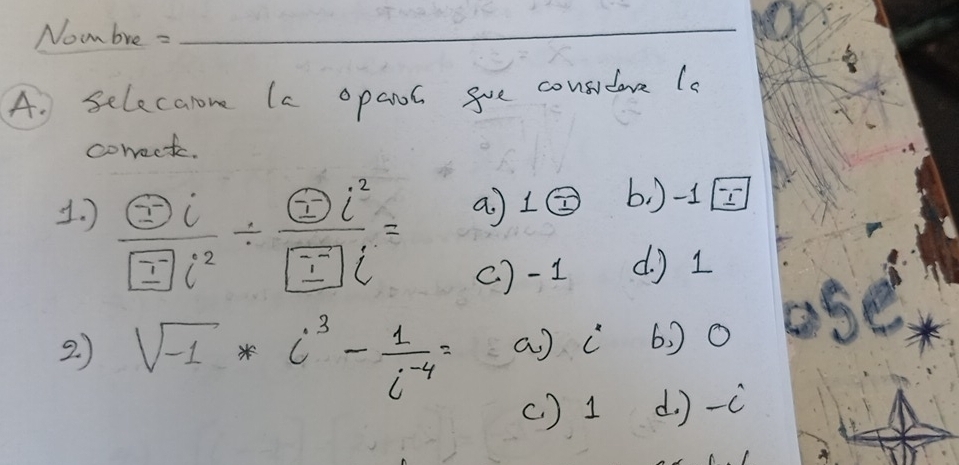 Nombre =
A. Seleccione la opción que considere la
correcta.
1.) 😐 i / 🔲 i² ÷ 😐 i² / 🔲 i = a.) 1 😐 b.) -1 🔲
c.) -1 d.) 1
2) √-1 * i³ - 1/i⁻⁴ = a.) i b.) 0
c.) 1 d.) -i
ose